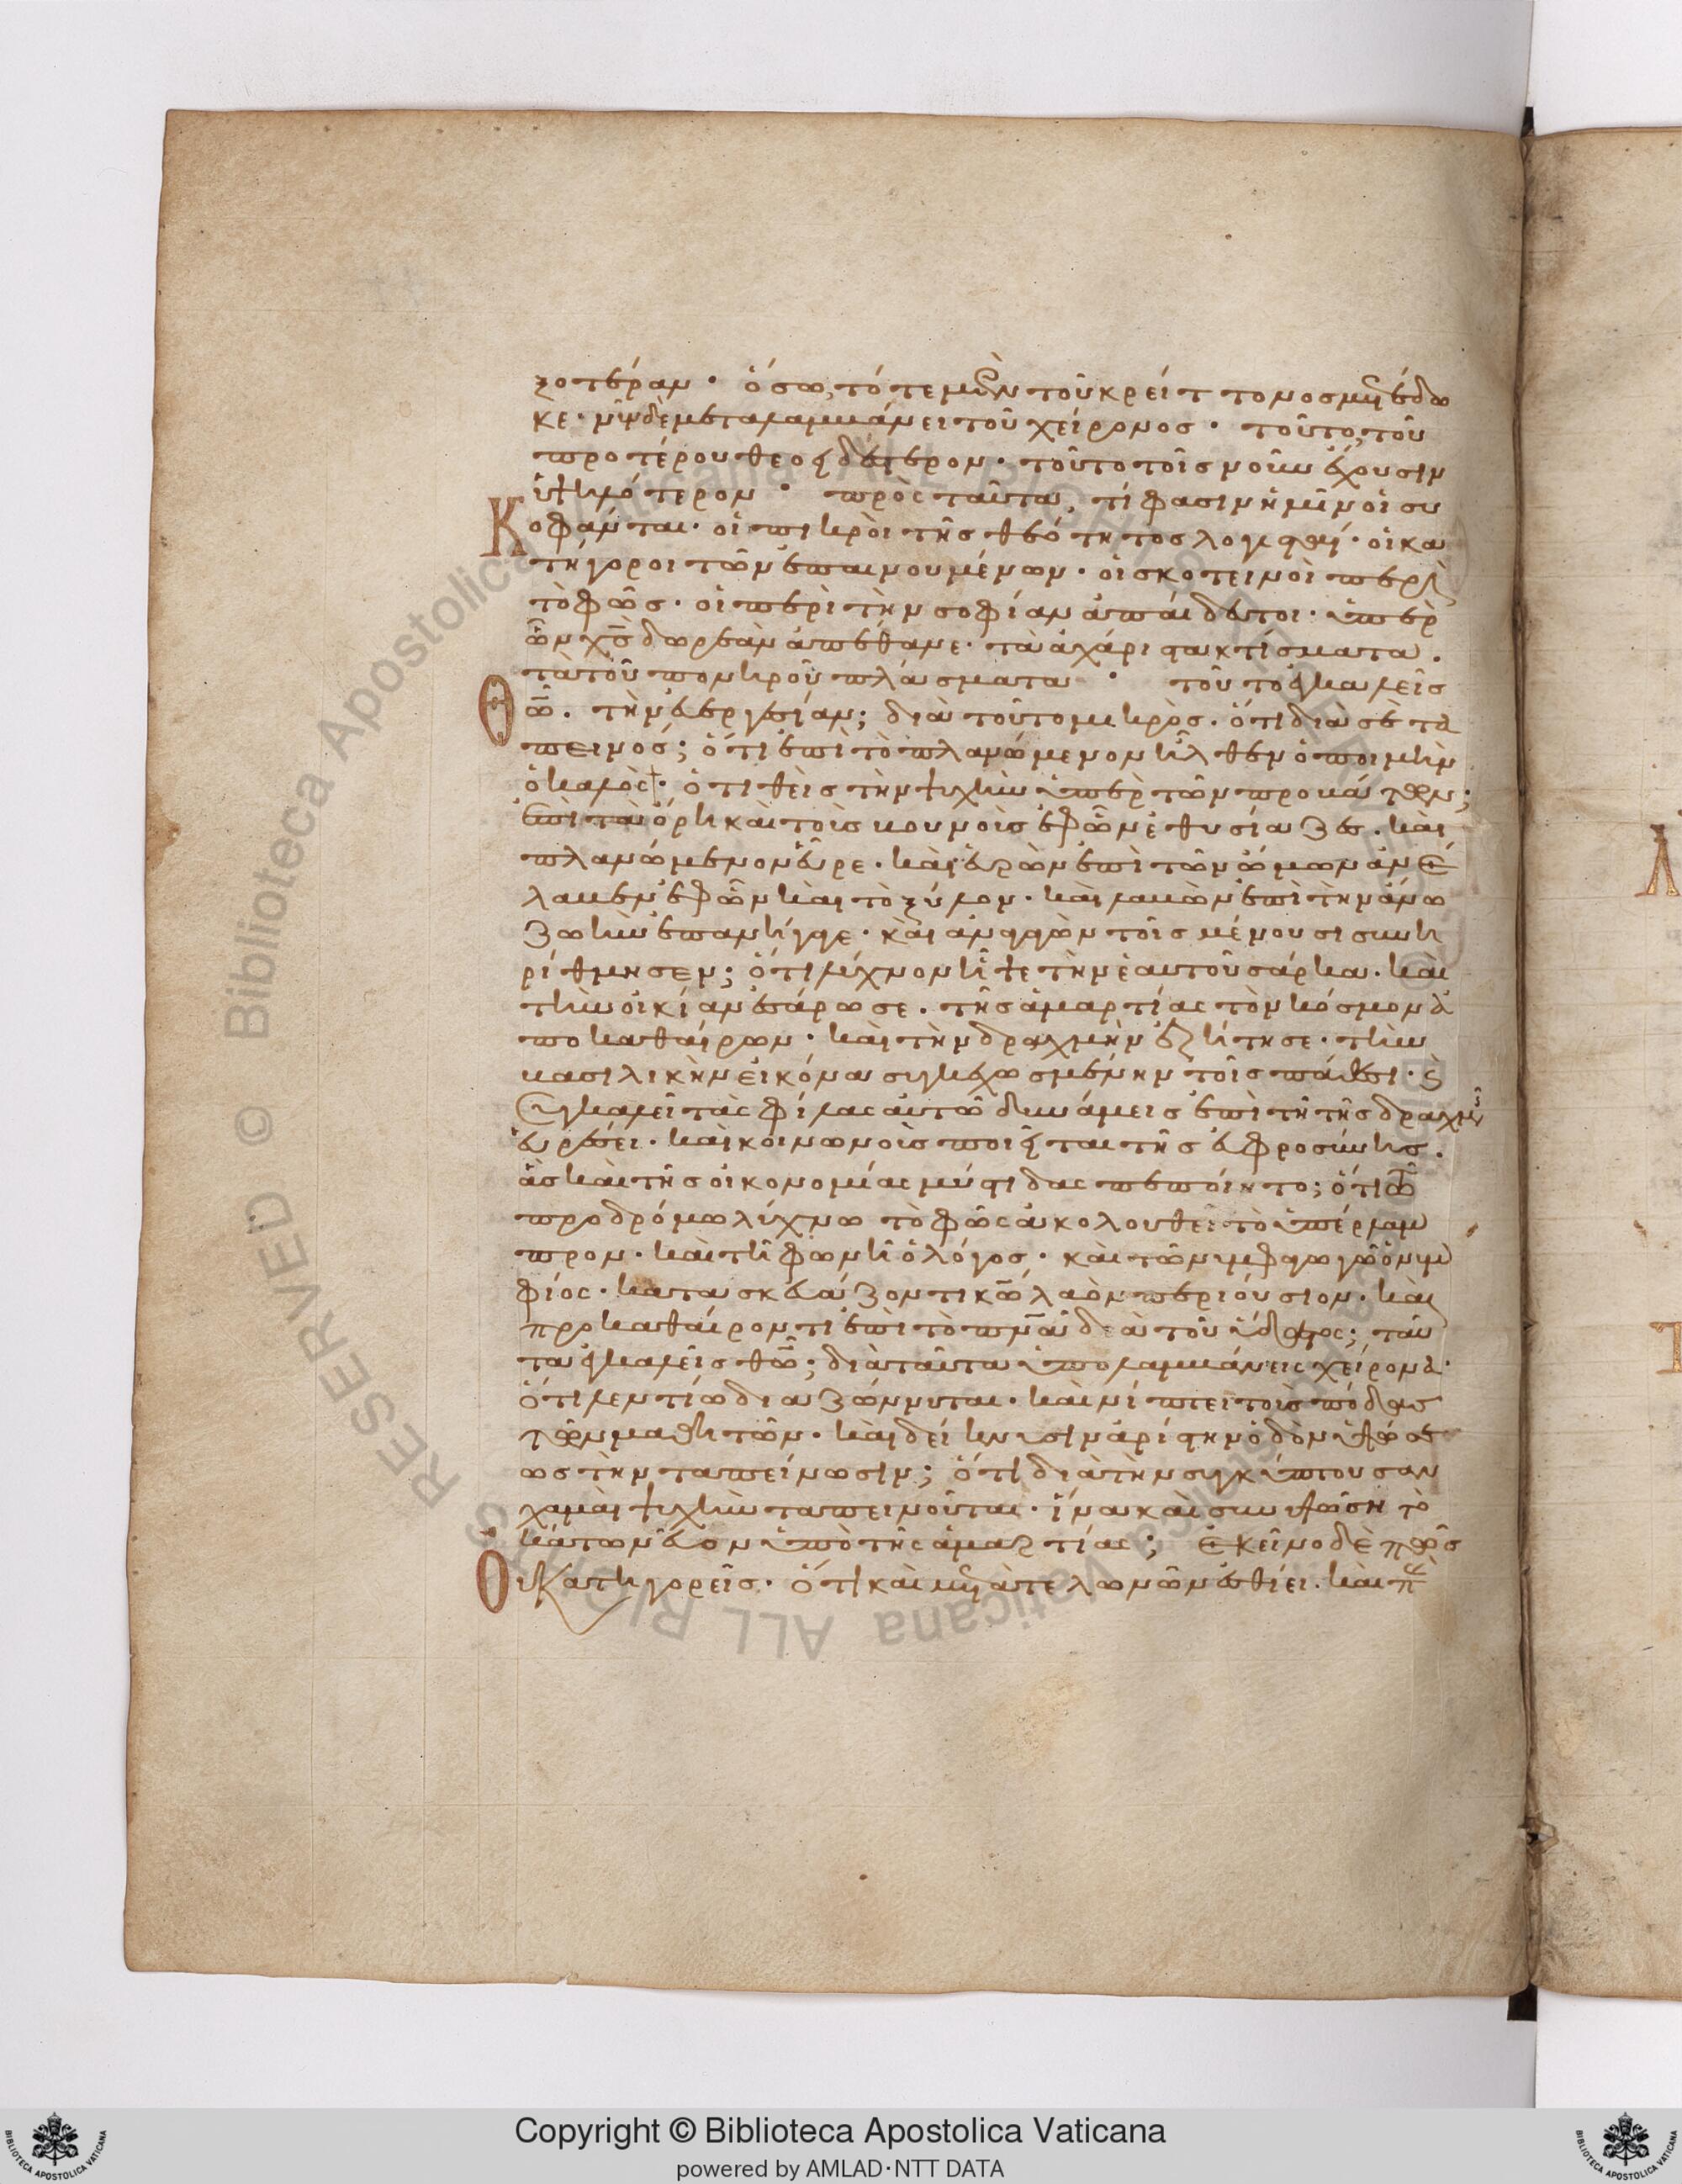 ξοτέραν· ὅσω, τότε μὲν τοῦ κρείττονος μετέδω
κε· νῦν δὲ μεταλαμβάνει τοῦ χείρονος· τοῦτο, τοῦ
προτέρου θεοειδέστερον· τοῦτο τοῖς νοῦν ἔχουσιν
ὑψηλότερον· πρὸς ταῦτα, τί φασιν ἡμῖν οἱ συ
Κοφάνται· οἱ πικροὶ τῆς θεότητος λογισταί· οἱ κα
τήγοροι τῶν ἐπαινουμένων· οἱ σκοτεινοὶ περὶ
τὸ φῶς· οἱ περὶ τὴν σοφίαν ἀπαίδευτοι· ὑπὲρ
ὧν χς δωρεὰν ἀπέθανε· τὰ ἀχάριστα κτίσματα·
τὰ τοῦ πονηροῦ πλάσματα· τοῦτο ἐγκαλεῖς
Θῶ· τὴν εὐεργεσίαν; διὰ τοῦτο μικρὸς· ὅτι διὰ σὲ τα
πεινός; ὅτι ἐπὶ τὸ πλανώμενον ἦλθεν ὁ ποιμὴν
ὁ καλὸς· ὁ τιθεὶς τὴν ψυχὴν ὑπὲρ τῶν προβάτων;
ἐπὶ τὰ ὄρη καὶ τοὺς βουνοὺς ἐφ ὧν ἐθυσίαζες· καὶ
πλανώμενον εὗρε· καὶ εὑρὼν ἐπὶ τῶν ὤμων ἀνέ
λαβεν ἐφ ὧν καὶ τὸ ξύλον· καὶ λαβὼν ἐπὶ τὴν ἄνω
ζωὴν ἐπανήγαγε· καὶ ἀναγαγὼν τοῖς μένουσι συνη
ρίθμησεν; ὅτι λύχνον ἧψε τὴν ἑαυτοῦ σάρκα· καὶ
τὴν οἰκίαν ἐσάρωσε· τῆς ἁμαρτίας τὸν κόσμον ἀ
ποκαθαίρων· καὶ τὴν δραχμὴν ἐζήτησε· τὴν
βασιλικὴν εἰκόνα συγκεχωσμένην τοῖς πάθεσι· καὶ
συγκαλεῖ τὰς φίλας αὐτῶ δυνάμεις ἐπὶ τῆ τῆς δραχμῆς
εὑρέσει· καὶ κοινωνοὺς ποιεῖται τῆς εὐφροσύνης·
ἃς καὶ τῆς οἰκονομίας μύστιδας πεποίητο; ὅτι τῶ
προδρόμω λύχνω τὸ φῶς ἀκολουθεῖ τὸ ὑπέρλαμ
προν· καὶ τῆ φωνῆ ὁ λόγος· καὶ τῶ νυμφαγωγῶ ὁ νυμ
φίος· κατασκευάζοντι κῶ λαὸν περιούσιον· καὶ
προκαθαίροντι ἐπὶ τὸ πνα διὰ τοῦ ὕδατος; ταῦ
τα ἐγκαλεῖς θῶ; διὰ ταῦτα ὑπολαμβάνεις χείρονα·
ὅτι λεντίω διαζώννυται· καὶ νίπτει τοὺς πόδας
τῶν μαθητῶν· καὶ δείκνυσιν ἀρίστην ὁδὸν ὑψώσε
ως τὴν ταπείνωσιν; ὅτι διὰ τὴν συγκύπτουσαν
χαμαὶ ψυχὴν ταπεινοῦται· ἵνα καὶ συνυψώση τὸ
κάτω νεῦον ὑπὸ τῆς ἁμαρτίας; ἐκεῖνο δὲ πῶς
Οὐ κατηγορεῖς· ὅτι καὶ μετὰ τελωνῶν ἐσθίει· καὶ π